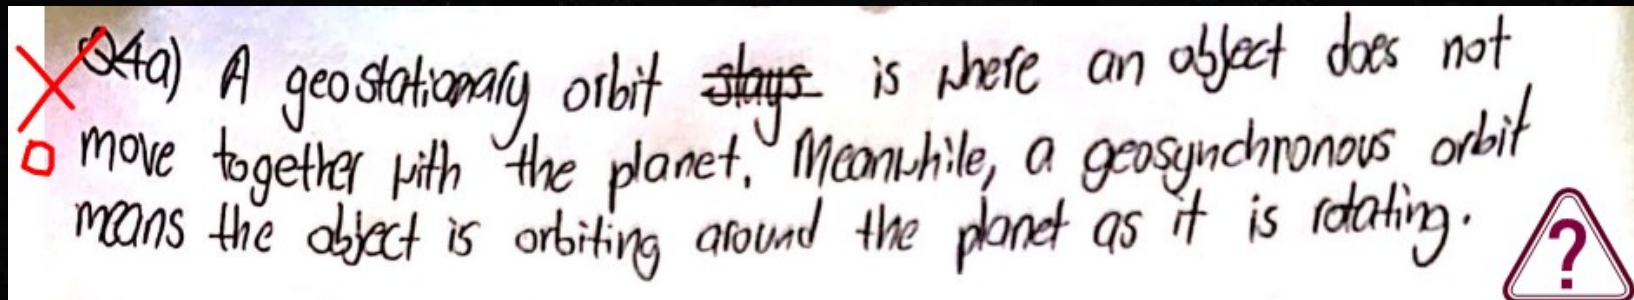 Q4a) A geostationary orbit stays is where an object does not
0 move together with the planet. Meanwhile, a geosynchronous orbit
means the object is orbiting around the planet as it is rotating.
?